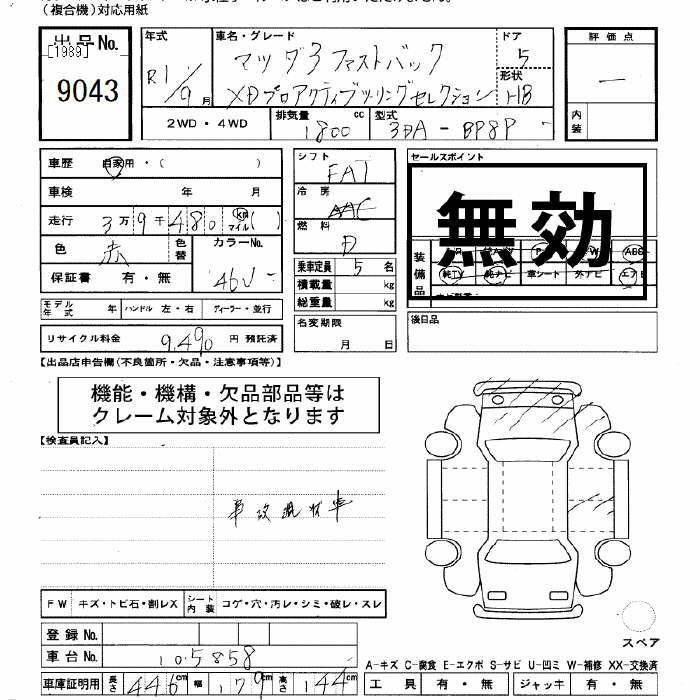 (複合機)対応用紙
出品No.
[1989]
9043
年式
R1/9月
車名・グレード
マツダ3 ファストバック
XDプロアクティブツーリングセレクション
ドア
5
形状
HB
評価点
内装
2WD・4WD
排気量
1800 cc
型式
3DA - BP8P
車歴 自家用・( )
車検 年 月
走行 3万9千480 km マイル( )
色 赤
色替
カラーNo.
46V
保証書 有・無
モデル年式 年
ハンドル 左・右
ディーラー・並行
リサイクル料金 9,490 円 預託済
シフト
FAT
冷房
AAC
燃料
D
乗車定員 5名
積載量 kg
総重量 kg
名変期限
月 日
セールスポイント
無効
装備品
ABS
純TV 純ナビ 革シート 外ナビ エアB
後日品
【出品店申告欄(不良箇所・欠品・注意事項等)】
機能・機構・欠品部品等は
クレーム対象外となります
【検査員記入】
事故現状車
FW キズ・トビ石・割レX
シート内装 コゲ・穴・汚レ・シミ・破レ・スレ
登録No.
車台No. 105858
車庫証明用 長さ 446cm 幅 179cm 高さ 144cm
スペア
A-キズ C-腐食 E-エクボ S-サビ U-凹ミ W-補修 XX-交換済
工具 有・無 ジャッキ 有・無